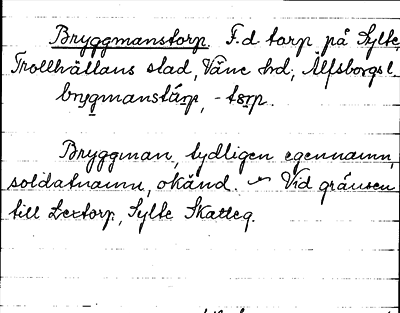 Bryggmanstorp. F.d torp på Sylte,
Trollhättans stad, Väne hd, Älfsborgs l.
brygmanstårp, -tɑrp.
Bryggman, tydligen egennamn,
soldatnamn, okänd. Vid gränsen
till Lextorp, Sylte Skatteg.